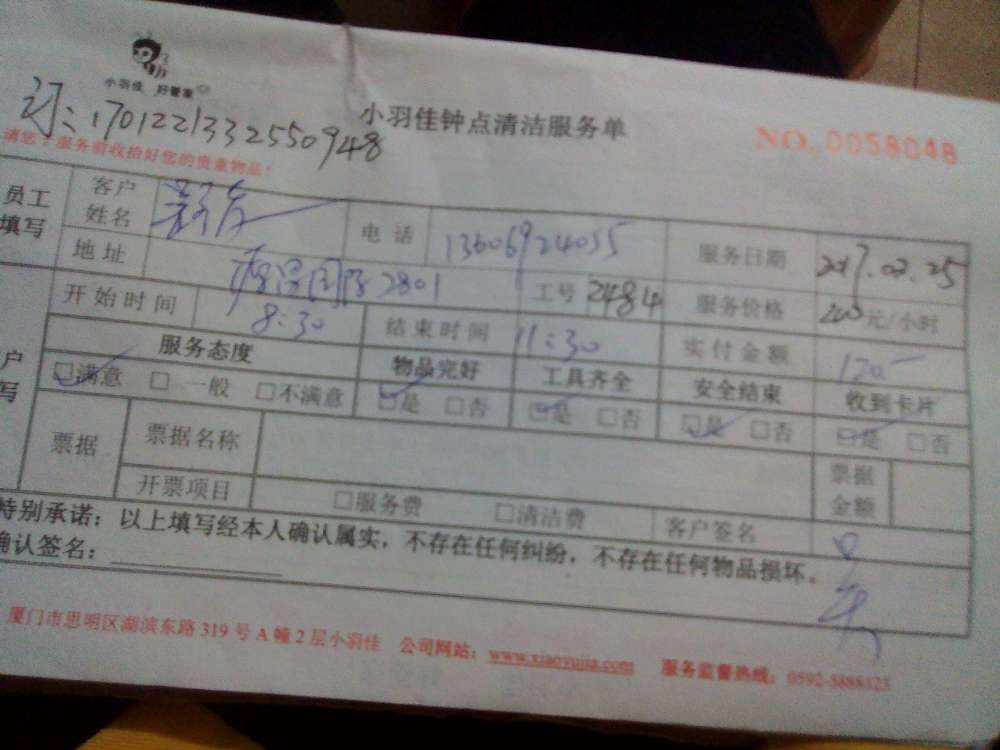 小羽佳 好管家
小羽佳钟点清洁服务单
NO. 0058048
订:1701221332550948
请您于服务前收拾好您的贵重物品!
员工填写 客户姓名 电话 13606924055 服务日期 2017.02.25
地址 国际2801 工号 2484 服务价格 元/小时
开始时间 8:30 结束时间 11:30 实付金额 120
服务态度 物品完好 工具齐全 安全结束 收到卡片
户写 ☑满意 □一般 □不满意 ☑是 □否 ☑是 □否 ☑是 □否 ☑是 □否
票据 票据名称 票据金额
开票项目 □服务费 □清洁费 客户签名
特别承诺:以上填写经本人确认属实,不存在任何纠纷,不存在任何物品损坏。
确认签名:
厦门市思明区湖滨东路319号A幢2层小羽佳 公司网站:www.xiaoyujia.com 服务监督热线:0592-5888123